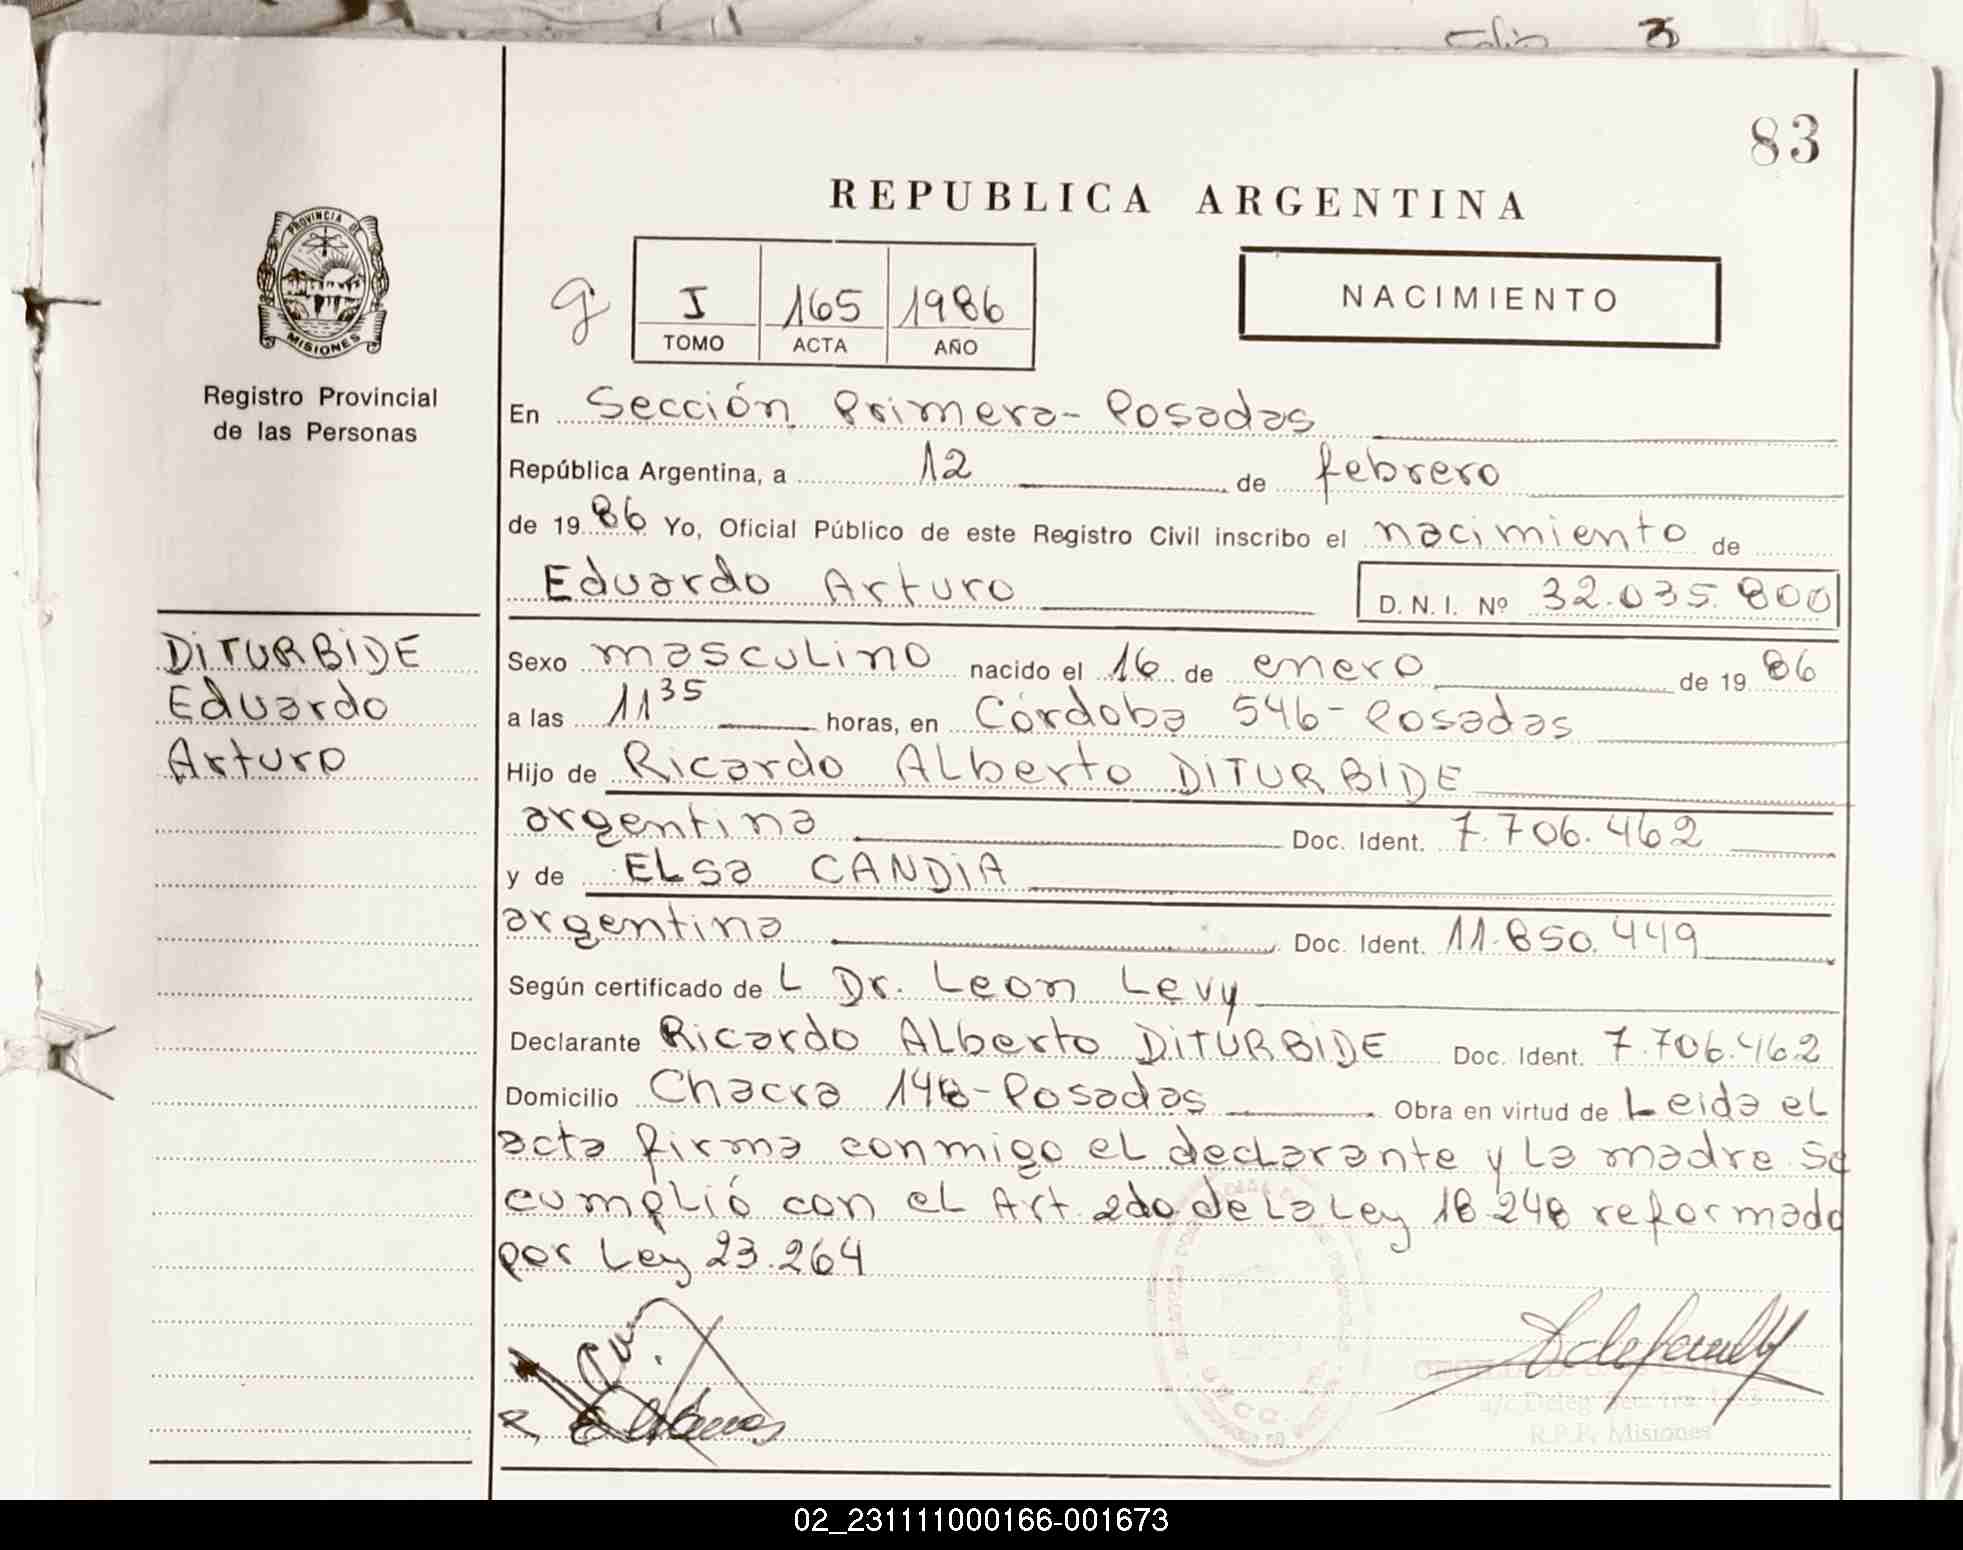 Folio 3
83
REPUBLICA ARGENTINA
PROVINCIA DE
MISIONES
Registro Provincial
de las Personas
I 165 1986
TOMO ACTA AÑO
NACIMIENTO
En Sección Primera- Posadas
República Argentina, a 12 de febrero
de 1986 Yo, Oficial Público de este Registro Civil inscribo el nacimiento de
Eduardo Arturo D.N.I. Nº 32.035.800
DiTURBiDE
Eduardo
Arturo
Sexo masculino nacido el 16 de enero de 1986
a las 11 35 horas, en Córdoba 546- Posadas
Hijo de Ricardo Alberto DiTURBiDE
argentina Doc. Ident. 7.706.462
y de ELsa CANDiA
argentina Doc. Ident. 11.850.449
Según certificado de L Dr. Leon Levy
Declarante Ricardo Alberto DiTURBiDE Doc. Ident. 7.706.462
Domicilio Chacra 148- Posadas Obra en virtud de Leida el
acta firma conmigo el declarante y la madre. Se
cumplió con el Art. 2do de la Ley 18.248 reformado
por Ley 23.264
R.P.P. Misiones
02_231111000166-001673